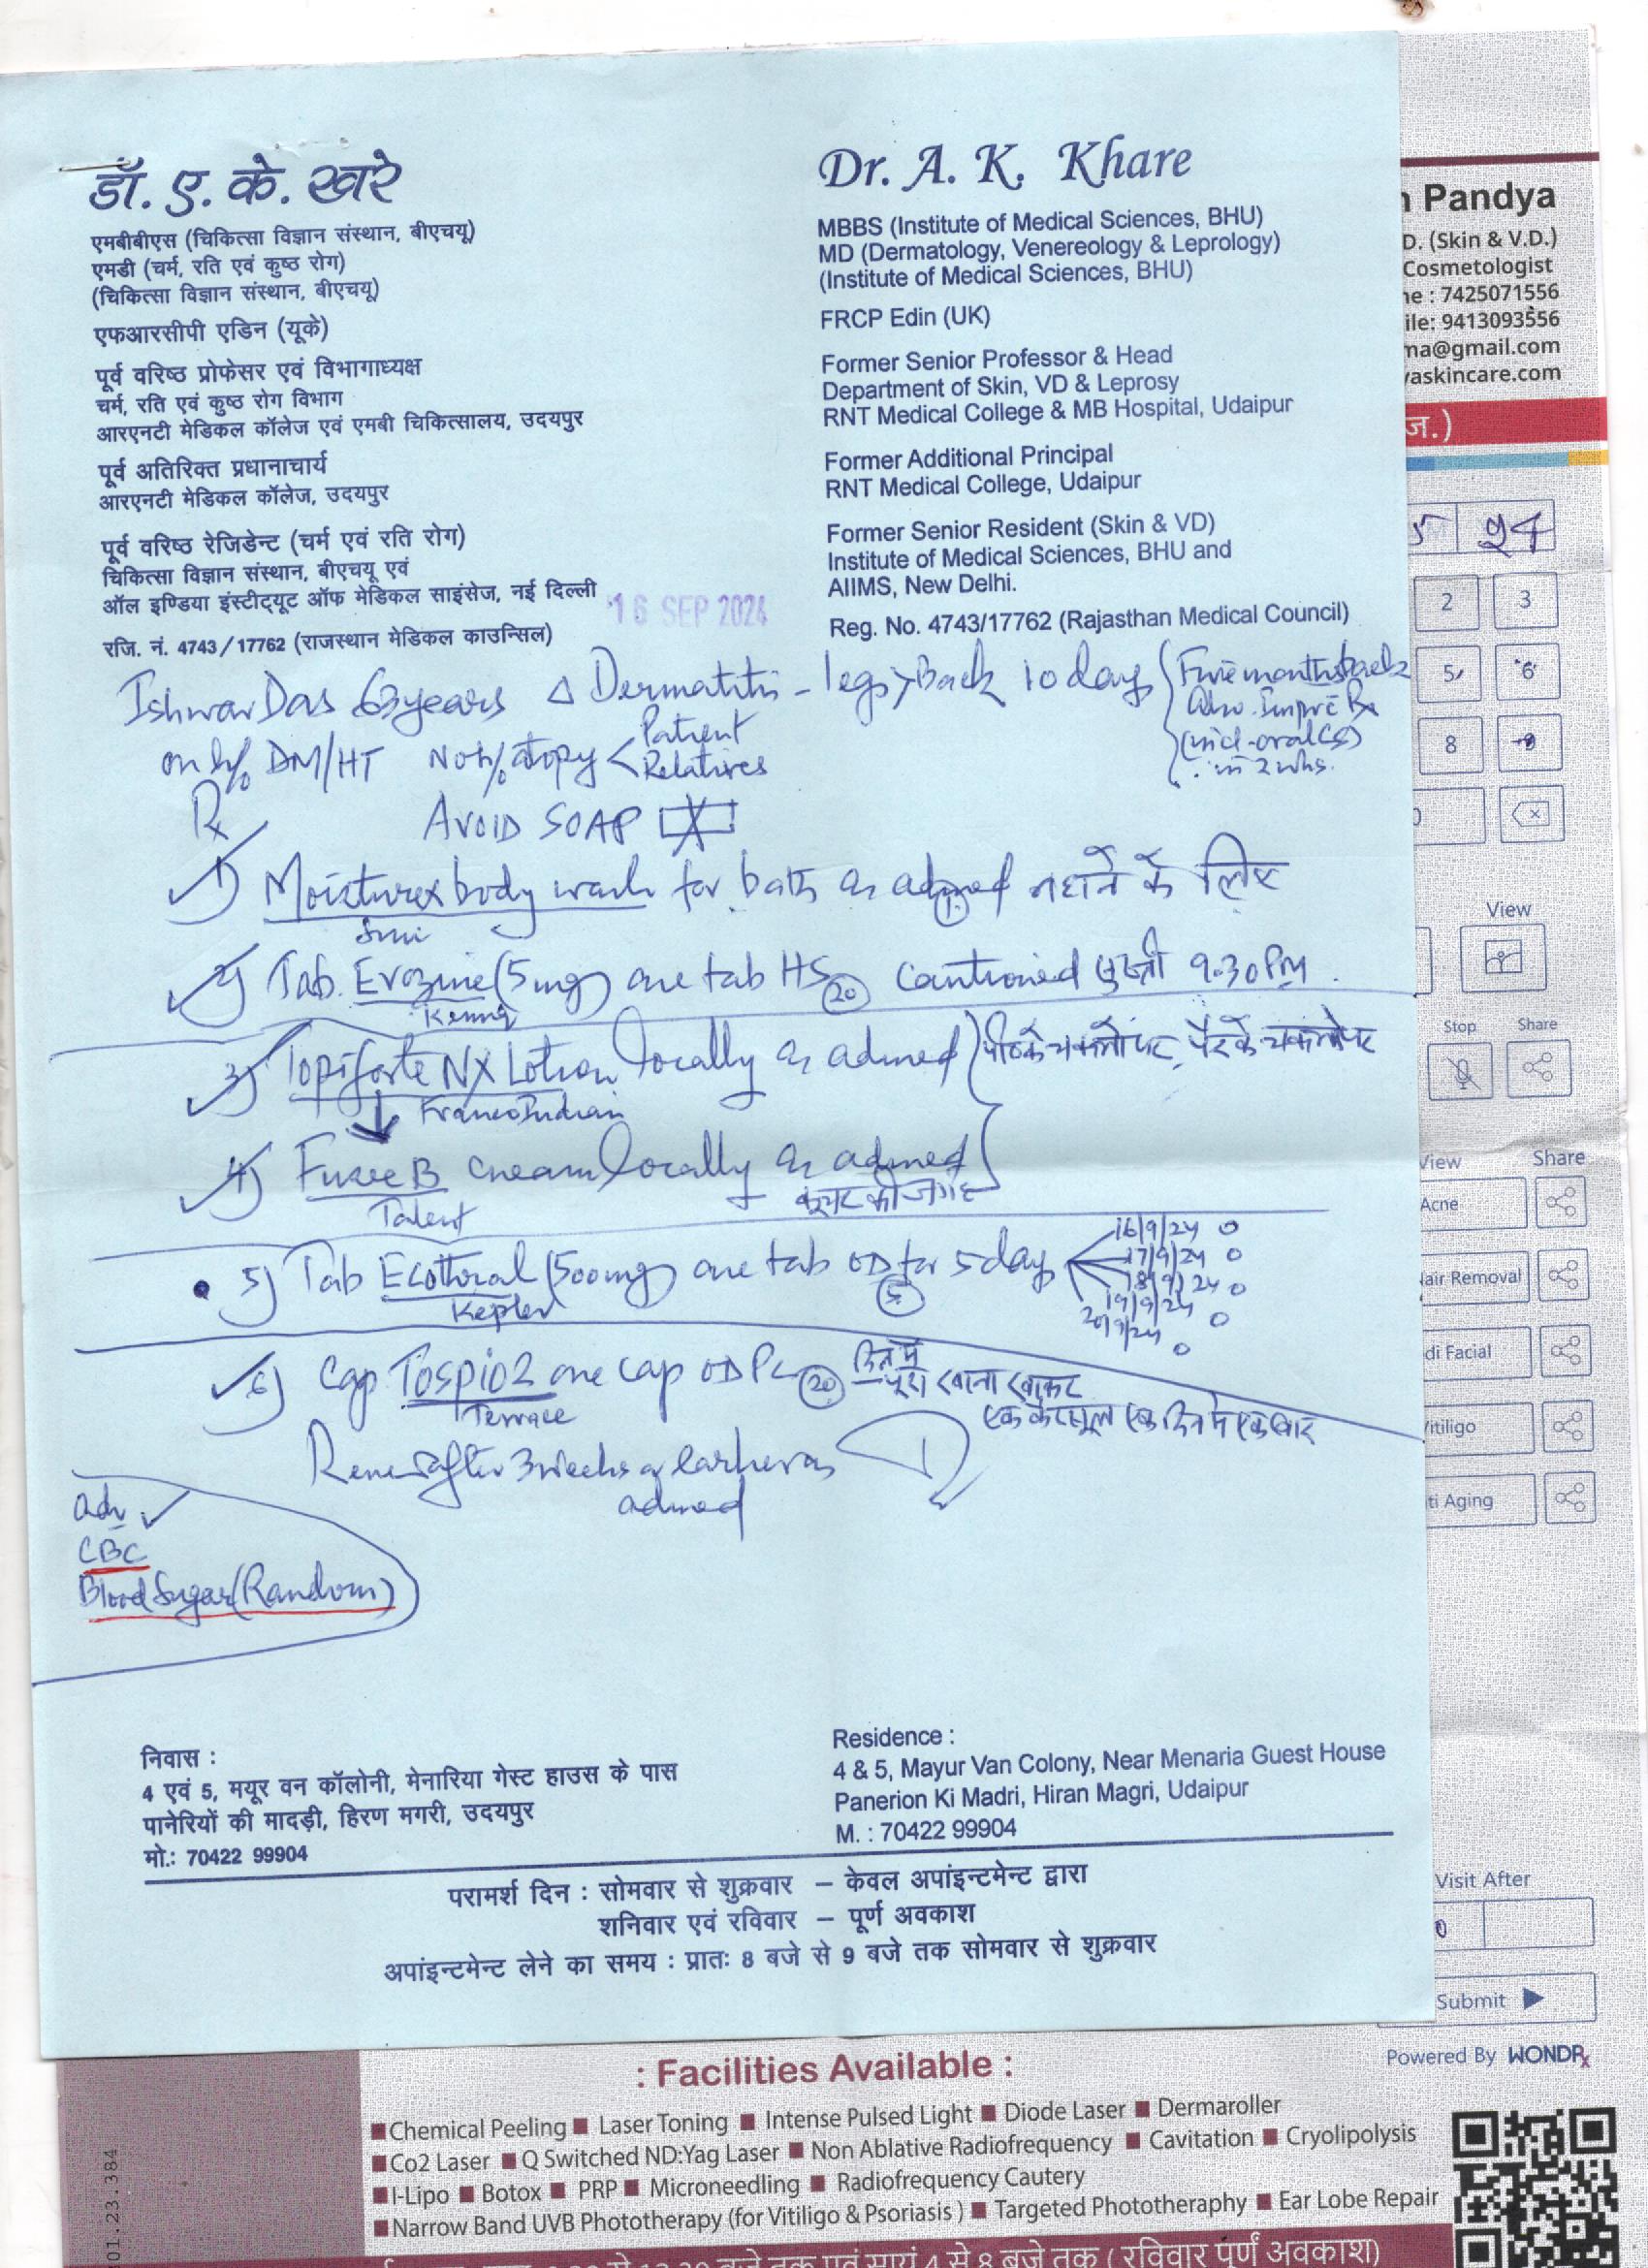 डॉ. ए. के. खरे
एमबीबीएस (चिकित्सा विज्ञान संस्थान, बीएचयू)
एमडी (चर्म, रति एवं कुष्ठ रोग)
(चिकित्सा विज्ञान संस्थान, बीएचयू)
एफआरसीपी एडिन (यूके)
पूर्व वरिष्ठ प्रोफेसर एवं विभागाध्यक्ष
चर्म, रति एवं कुष्ठ रोग विभाग
आरएनटी मेडिकल कॉलेज एवं एमबी चिकित्सालय, उदयपुर
पूर्व अतिरिक्त प्रधानाचार्य
आरएनटी मेडिकल कॉलेज, उदयपुर
पूर्व वरिष्ठ रेजिडेन्ट (चर्म एवं रति रोग)
चिकित्सा विज्ञान संस्थान, बीएचयू एवं
ऑल इण्डिया इंस्टीट्यूट ऑफ मेडिकल साइंसेज, नई दिल्ली
रजि. नं. 4743/17762 (राजस्थान मेडिकल काउन्सिल)
16 SEP 2024
Dr. A. K. Khare
MBBS (Institute of Medical Sciences, BHU)
MD (Dermatology, Venereology & Leprology)
(Institute of Medical Sciences, BHU)
FRCP Edin (UK)
Former Senior Professor & Head
Department of Skin, VD & Leprosy
RNT Medical College & MB Hospital, Udaipur
Former Additional Principal
RNT Medical College, Udaipur
Former Senior Resident (Skin & VD)
Institute of Medical Sciences, BHU and
AIIMS, New Delhi.
Reg. No. 4743/17762 (Rajasthan Medical Council)
Pandya
D. (Skin & V.D.)
Cosmetologist
ne : 7425071556
ile: 9413093556
ma@gmail.com
askincare.com
ज.)
5 24
2 3
5 6
8 9
Ishwar Das 63 years Δ Dermatitis - legs > Back 10 days
Five months back
in 2 wks.
DM/HT No h/o atopy < Patient
Relatives
Rx AVOID SOAP
1) Moisturex body wash for bath as advised 1 नहाने के लिए
2) Tab. Evozine (5mg) one tab HS 20 Cautioned 9.30 PM
3) Topiforte NX Lotion locally as advised
Franco Indian
4) Fusee B cream locally as advised
Talent
5) Tab Ecothral (500mg) one tab OD for 5 days 5
Kepler
16/9/24 0
17/9/24 0
18/9/24 0
19/9/24 0
20/9/24 0
6) Cap Tospio 2 one cap OD PC 20 दिन में
पूरा खाना खाकर
एक केप्सूल एक दिन में एक बार
Terrace
Renew after 3 weeks or earlier as
advised
Adv
CBC
Blood Sugar (Random)
View
Stop Share
View Share
Acne
Hair Removal
di Facial
Vitiligo
ti Aging
Visit After
Submit
Powered By WONDRx
निवास :
4 एवं 5, मयूर वन कॉलोनी, मेनारिया गेस्ट हाउस के पास
पानेरियों की मादड़ी, हिरण मगरी, उदयपुर
मो.: 70422 99904
Residence :
4 & 5, Mayur Van Colony, Near Menaria Guest House
Panerion Ki Madri, Hiran Magri, Udaipur
M. : 70422 99904
परामर्श दिन : सोमवार से शुक्रवार – केवल अपांइन्टमेन्ट द्वारा
शनिवार एवं रविवार – पूर्ण अवकाश
अपांइन्टमेन्ट लेने का समय : प्रातः 8 बजे से 9 बजे तक सोमवार से शुक्रवार
: Facilities Available :
Chemical Peeling Laser Toning Intense Pulsed Light Diode Laser Dermaroller
Co2 Laser Q Switched ND:Yag Laser Non Ablative Radiofrequency Cavitation Cryolipolysis
I-Lipo Botox PRP Microneedling Radiofrequency Cautery
Narrow Band UVB Phototherapy (for Vitiligo & Psoriasis ) Targeted Phototheraphy Ear Lobe Repair
01.23.384
बजे तक एवं सायं 4 से 8 बजे तक ( रविवार पूर्ण अवकाश)